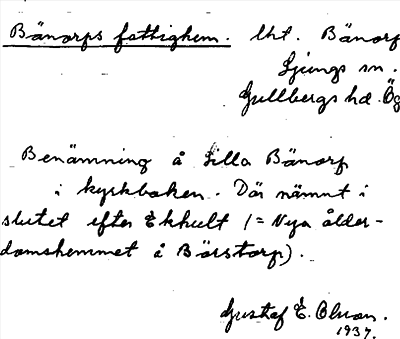 Bänorps fattighem. Uht. Bänorp
Ljungs sn.
Gullbergs hd. Ög
Benämning å Lilla Bänorp
i kyrkboken. Där nämnt i
slutet efter Ekhult (= Nya ålder-
domshemmet å Bärstorp).
Gustaf E. Olson.
1937.